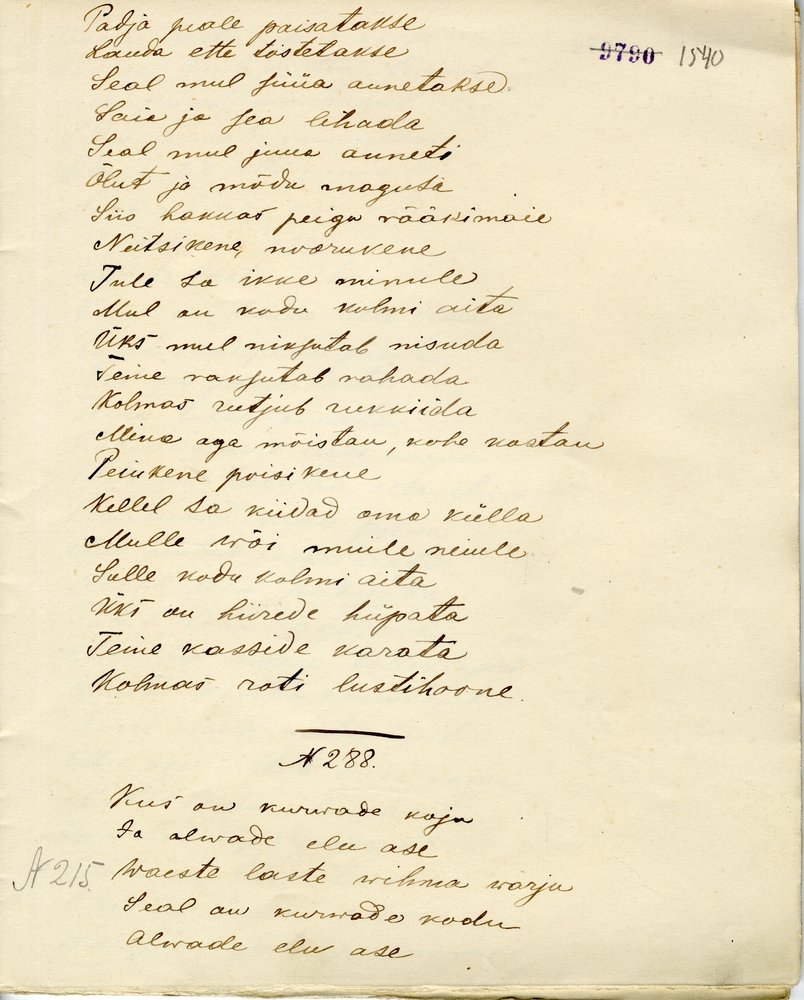 Padja peale paisatakse
Lauda ette tõstetakse
9790 1540
Seal mul süüa annetakse
Saia ja sea lihada
Seal mul juua anneti
Õlut ja mõdu magusa
Siis hakkas peigu rääkimaie
Neitsikene, noorukene
Tule sa ikke minule
Mul on kodu kolmi aita
Üks mul niksutab nisuda
Teine raksutab rahada
Kolmas rutjub rukkiida
Mina aga mõistan, kohe kostan
Peiukene poisikene
Kellel sa kiidad oma külla
Mulle wõi muile neiule
Sulle kodu kolmi aita
Üks on hiirede hüpata
Teine kasside karata
Kolmas roti lustihoone.
N 288.
Kus on kurwade koju
Ja alwade elu ase
N 215. Waeste laste wihma warju
Seal on kurwade kodu
Alwade elu ase